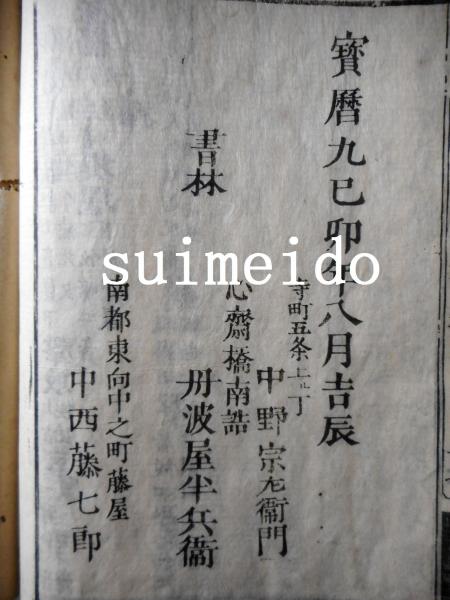 寳暦九己卯年八月吉辰
書林
寺町五条上ル丁
中野宗左衞門
心齋橋南詰
丹波屋半兵衞
南都東向中之町藤屋
中西藤七郎
suimeido